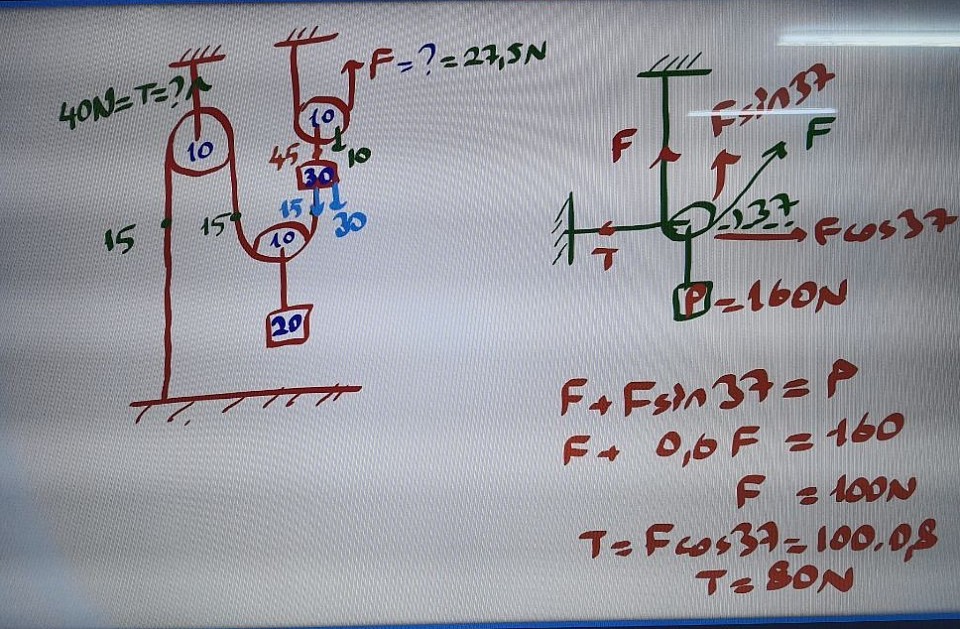 40N=T=?
F=?=27,5N
10
10
45
10
30
15
15
15
30
10
20
F
Fsin37
F
37
Fcos37
T
P=160N
F+Fsin37=P
F+ 0,6F = 160
F = 100N
T=Fcos37=100.0,8
T=80N